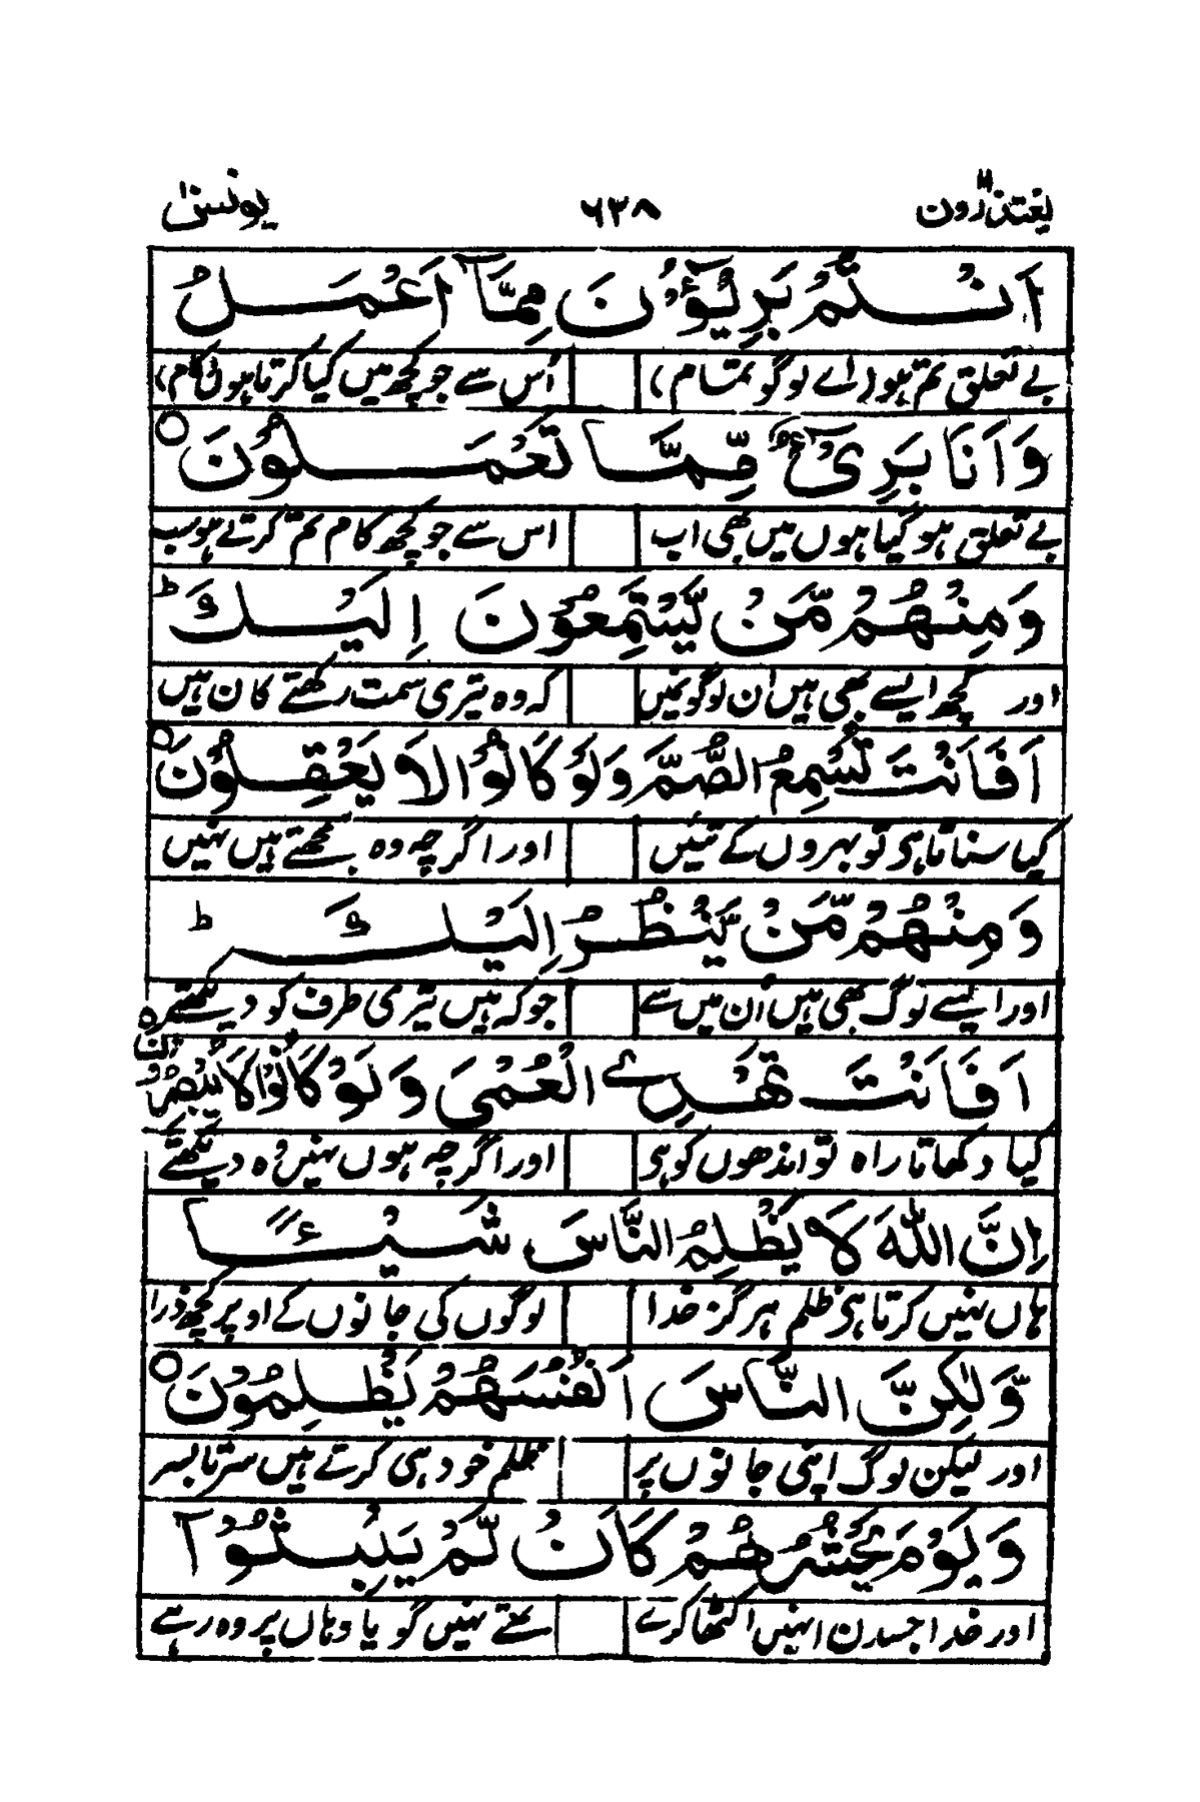 یعتذرون ۱۱ ۶۳۸ یونس ۱۰
اَنْتُمْ بَرِیْٓـُٔوْنَ مِمَّاۤ اَعْمَلُ
بے تعلق تم ہو (اے لوگو تمام) اُس سے جو کچھ میں کیا کرتا ہوں (کام)
وَاَنَا بَرِیْٓءٌ مِّمَّا تَعْمَلُوْنَ ○
بے تعلق ہو گیا ہوں میں بھی اب اس سے جو کچھ کام تم کرتے ہو سب
وَمِنْهُمْ مَّنْ یَّسْتَمِعُوْنَ اِلَیْكَ ؕ
اور کچھ ایسے بھی ہیں اُن لوگو نمیں کہ وہ تیری سمت رکھتے کان ہیں
اَفَاَنْتَ تُسْمِعُ الصُّمَّ وَلَوْ كَانُوْا لَا یَعْقِلُوْنَ ○
کیا سناتا ہی تو بہروں کے تئیں اور اگرچہ وہ سمجھتے ہیں نہیں
وَمِنْهُمْ مَّنْ یَّنْظُرُ اِلَیْكَ ؕ
اور ایسے لوگ بھی ہیں اُن میں سے جو کہ ہیں تیری طرف کو دیکھتے
اَفَاَنْتَ تَهْدِی الْعُمْیَ وَلَوْ كَانُوْا لَا یُبْصِرُوْنَ ○
کیا دکھاتا راہ تو اندھوں کو ہی اور اگرچہ ہوں نہیں وہ دیکھتے
اِنَّ اللّٰهَ لَا یَظْلِمُ النَّاسَ شَیْـًٔا
ہاں نہیں کرتا ہی ظلم ہرگز خدا لوگوں کی جانوں کے اوپر کچھ ذرا
وَّلٰكِنَّ النَّاسَ اَنْفُسَهُمْ یَظْلِمُوْنَ ○
اور لیکن لوگ اپنی جانوں پر ظلم خود ہی کرتے ہیں سرتا بسر
وَیَوْمَ یَحْشُرُهُمْ كَاَنْ لَّمْ یَلْبَثُوْۤا
اور خدا جسدن انہیں اکٹھا کرے تھے نہیں گویا وہاں پر وہ رہے